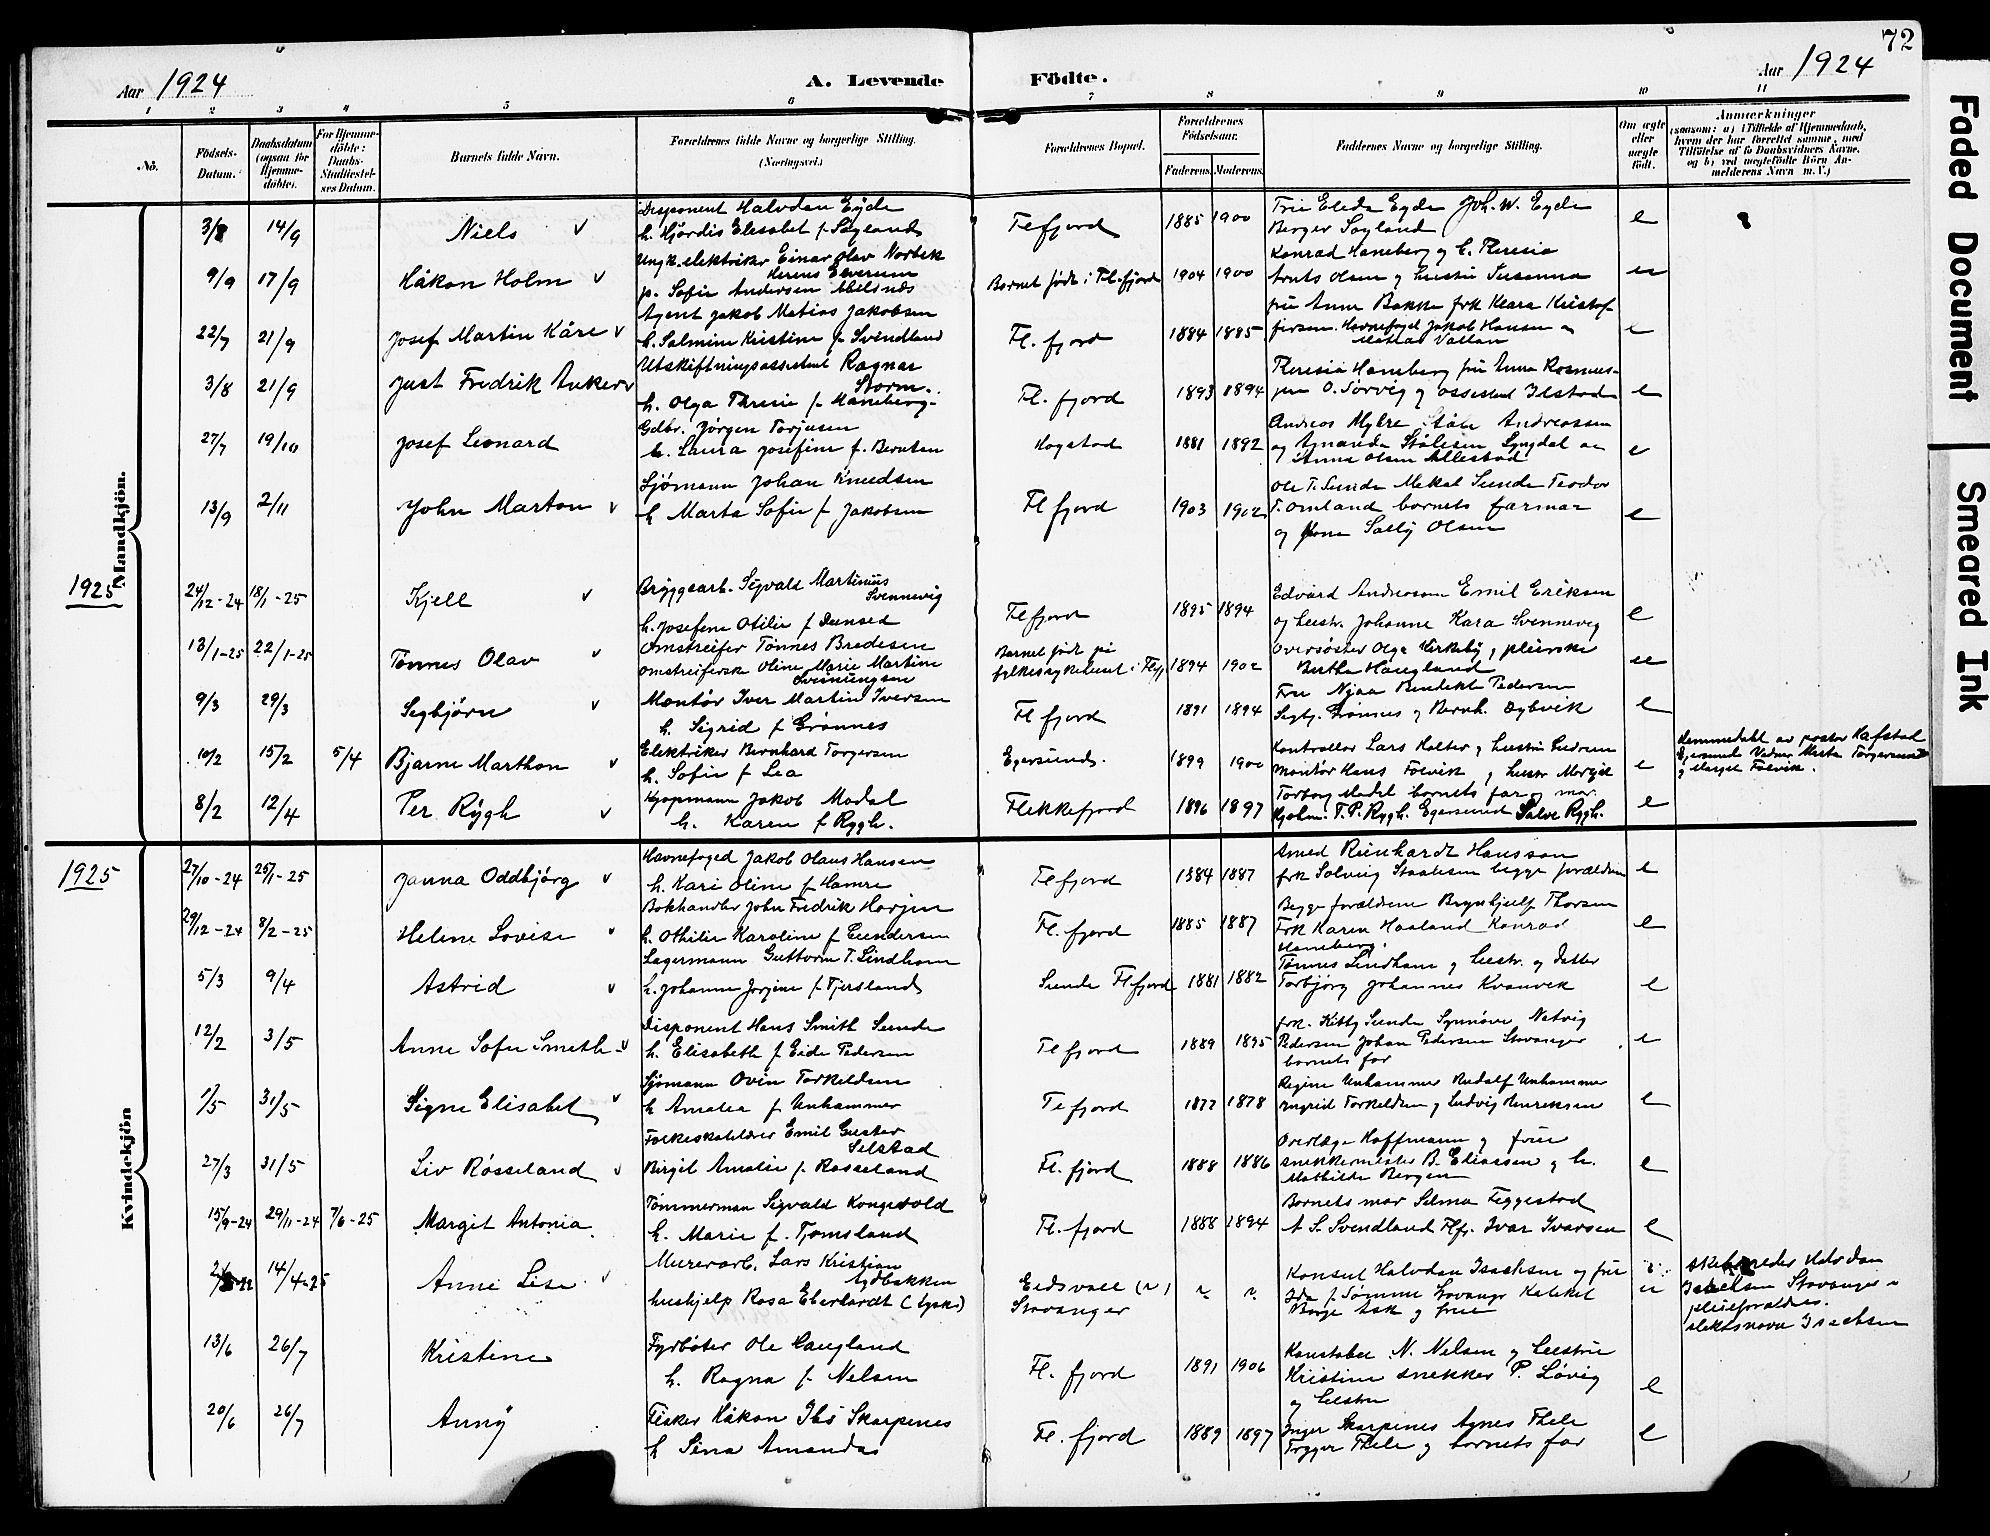 72
Aar 1924
A. Levende Födte.
Aar 1924
1 2 3 4 5 6 7 8 9 10 11
No.
Födsels-Datum.
Daabsdatum (ogsaa for Hjemmedöbte).
For Hjemmedöbte: Daabs-Stadfæstelses Datum.
Barnets fulde Navn.
Forældrenes fulde Navne og borgerlige Stilling. (Næringsvei.)
Forældrenes Bopæl.
Forældrenes Födselsaar.
Faderens. Moderens.
Faddernes Navne og borgerlige Stilling.
Om ægte eller uægte födt.
Anmærkninger
(saasom: a) i Tilfælde af Hjemmedaab, hvem der har forrettet samme, med Tilföielse af to Daabsvidners Navne, og b) ved uægtefödte Börn Anmelderens Navn m. V.)
Mandkjön.
3/8 14/9 Niels v
Disponent Halvdan Eyde
h. Hjørdis Elesabet f. Søyland
Flefjord 1885 1900
Fru Eleda Eyde Joh. W. Eyde
Berger Søyland
e
9/9 17/9 Håkon Holm v
Ungk. elektriker Einar Olav Norbek
p. Sofie Andersen Abelsnes
Barnet født i Fl.fjord 1904 1900
Konrad Haneberg og h. Theresia
Arnts Olsen og hustru Susanna
ue
22/7 21/9 Josef Martin Kåre v
Agent Jakob Matias Jakobsen
h. Salmine Kristine f. Svindland
Fl. fjord 1884 1885
fru Anna Bakke frk Klara Kristof
fersen. Havnefoged Jakob Hansen
e
3/8 21/9 Just Fredrik Anker v
Utskiftningsassistent Ragnar
Storm.
h. Olga Therese f. Haneberg.
Fl. fjord 1893 1894
Theresia Haneberg fru Anna Rasmus-
sen O. Sørvig og assistent Ilstad
e
27/7 19/10 Josef Leonard
Gdbr. Jørgen Torjusen
h. Laura Josefine f. Berntsen
Hogstad 1881 1892
Andreas Myhre Ståle Andreassen
og Amanda Stålesen Lyngdal
Anna Olsen Allestad
e
13/9 2/11 John Marton v
Sjømann Johan Knudsen
h. Marta Sofie f. Jakobsen
Fl fjord 1903 1902
Ole T. Sunde Mekal Sunde Teodor
T. Omland barnets farmor
og frøna Sally Olsen
e
1925
24/12-24 18/1-25 Kjell v
Bryggearb. Sigvald Martinius
Svennevig
h. Josefine Otilie f Dunsed
Flfjord 1895 1894
Edvard Andreassen Emil Eriksen
og hustr. Johanne Kara Svennevig
e
13/1-25 22/1-25 Tønnes Olav v
Omstreifer Tønnes Bredesen
omstreiferske Oline Marie Martine
Svenningsen
Barnet født på
fylkessykehuset i Flfj 1894 1902
oversøster Olga Virkeby, pleierske
Bertha Haugland
ue
9/3 29/3 Sigbjørn v
Montør Iver Martin Iversen
h. Sigrid f Grønnes
Fl fjord 1891 1894
Fru Njaa Benedikte Pedersen
Sigbj. Grønnes og Bernh. Dybvik
e
10/2 15/2 5/4 Bjarne Marthon v
Elektriker Bernhard Torgersen
h. Sofie f Lea
Egersund. 1899 1900
Kontrollør Lars Holter og hustru Gudrun
Montør Hans Følvik og hustr Margit
e
Hjemmedøbt av pastor Hafstad
8/2 12/4 Per Rygh v
Kjøpmann Jakob Modal
h. Karen f Rygh.
Flekkefjord 1896 1897
Torborg Modal barnets far og mor
Kjøbm. T. P. Rygh. Egersund Salve Rygh.
e
Kvindekjön
1925
27/10-24 25/1-25 Janna Oddbjørg v
Havnefoged Jakob Olaus Hansen
h. Kari Oline f Hamre
Flfjord 1884 1887
Amed Reinhardt Hansson
frk Solveig Staalesen begge forældre
e
29/12-24 8/2-25 Helene Lovise v
Bokhandler John Fredrik Hørjen
h. Othilie Karoline f Gundersen
Fl. fjord 1885 1887
Begge forældrene Brynhjulf Thorsen
Frk Karen Haaland Konrad
Haneberg.
e
5/3 9/4 Astrid v
Lagermann Guttorm T. Lindham
h. Johanne Jorgine f. Fjersland
Sunde Fl fjord 1881 1882
Tønnes Lindham og hustr. og datter
Torbjørg Johannes Kvanvik
e
12/2 3/5 Anne Sofie Smith v
Disponent Hans Smith Sunde
h. Elisabeth f Eide Pedersen
Flfjord 1889 1895
frk. Kitty Sunde Synnøve Natvig
Pedersen Johan Pedersen Stavanger
barnets far
e
1/5 31/5 Signe Elisabet v
Sjømann Ovin Torkeldsen
h Amalia f Unhammer
Flfjord 1877 1878
Regine Unhammer Rudolf Unhammer
Ingrid Torkeldsen og Ludvig Henriksen
e
27/3 31/5 Liv Røsseland v
Folkeskolelærer Emil Gustav
Selstad
Birgit Amalie f. Røsseland
Fl. fjord 1888 1886
Overlæge Hoffmann og frue
snekkermester B. Eliassen og h.
Mathilde Bergen
e
15/9-24 29/11-24 7/6-25 Margit Antonia
Tømmerman Sigvald Kongevold
h. Marie f. Tjomsland
Fl. fjord 1888 1894
Barnets mor Selma Feggestad
A S. Svendland Flfj. Ivar Ivarsen
e
14/4-25 Anne Lise v
Murerarb. Lars Kristian
Nydbakken
hushjelp Rosa Eberhardt (tysk)
Eidsvoll (?)
Stavanger
Konsul Halvdan Isachsen og frue
Ida f. Sømme Stavanger Kateket
Børge Ask og frue
skibsreder Halvdan
Isachsen Stavanger
pleieforældre.
slektsnavn Isachsen
13/6 26/7 Kristine
Fyrbøter Ole Haugland
h. Ragna f. Nelsen
Fl. fjord 1891 1906
Konstabel N. Nelsen og hustru
Kristine snekker P. Løvig
og hustru
e
20/6 26/7 Anny
Fisker Håkon Ths Skarpenes
h Sina Amanda
Fl. fjord 1889 1897
Inger Skarpenes Agnes Thele
Trygge Thele og barnets far
e
Faded Document
Smeared Ink